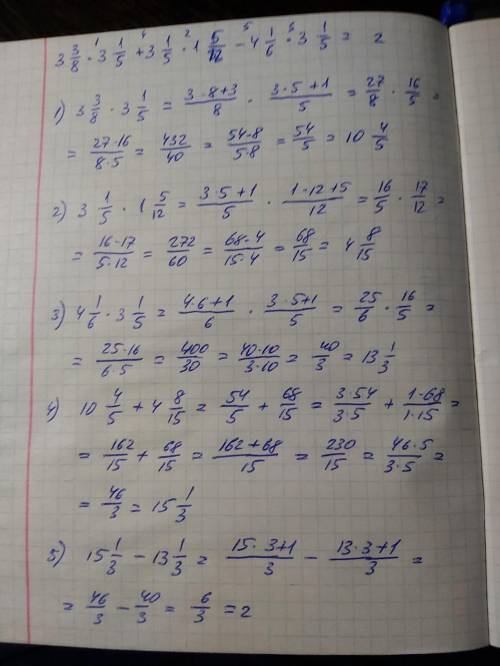 3 3/8 · 3 1/5 + 3 1/5 · 1 5/12 − 4 1/6 · 3 1/5 = 2
1) 3 3/8 · 3 1/5 = (3·8+3)/8 · (3·5+1)/5 = 27/8 · 16/5 =
= (27·16)/(8·5) = 432/40 = (54·8)/(5·8) = 54/5 = 10 4/5
2) 3 1/5 · 1 5/12 = (3·5+1)/5 · (1·12+5)/12 = 16/5 · 17/12 =
= (16·17)/(5·12) = 272/60 = (68·4)/(15·4) = 68/15 = 4 8/15
3) 4 1/6 · 3 1/5 = (4·6+1)/6 · (3·5+1)/5 = 25/6 · 16/5 =
= (25·16)/(6·5) = 400/30 = (40·10)/(3·10) = 40/3 = 13 1/3
4) 10 4/5 + 4 8/15 = 54/5 + 68/15 = (3·54)/(3·5) + (1·68)/(1·15) =
= 162/15 + 68/15 = (162+68)/15 = 230/15 = (46·5)/(3·5) =
= 46/3 = 15 1/3
5) 15 1/3 − 13 1/3 = (15·3+1)/3 − (13·3+1)/3 =
= 46/3 − 40/3 = 6/3 = 2